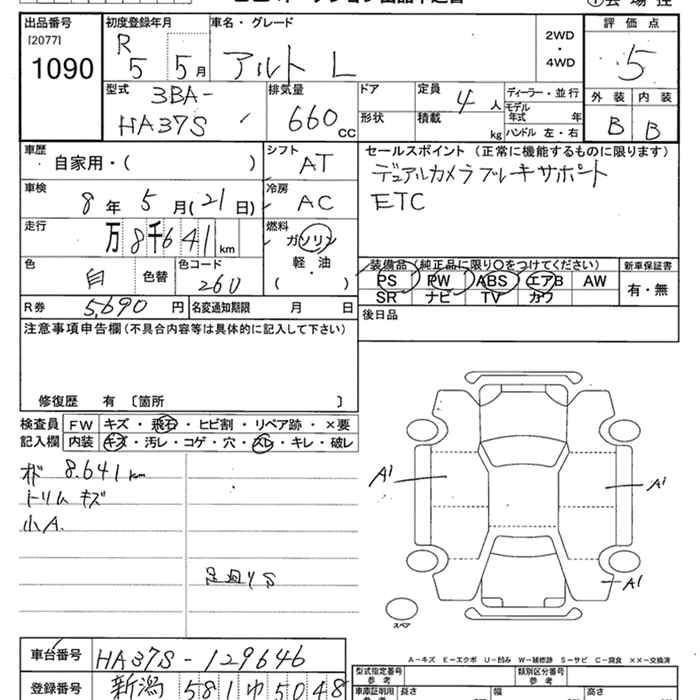 出品番号
[2077]
1090
初度登録年月
R
5 5月
車名・グレード
アルト L
2WD
・
4WD
評価点
5
外装 内装
B B
型式
3BA-
HA37S
排気量
660 CC
ドア
形状
定員
4人
積載
kg
ディーラー・並行
モデル
年式 年
ハンドル 左・右
車歴
自家用・( )
シフト
AT
セールスポイント (正常に機能するものに限ります)
デュアルカメラブレーキサポート
ETC
車検
8年 5月(21日)
冷房
AC
走行
万 8千641 km
燃料
ガソリン
軽・油
( ・ )
色
白
色替
色コード
26U
装備品(純正品に限り○をつけてください)
PS PW ABS エアB AW
SR ナビ TV カワ
新車保証書
有・無
R券
5,690 円
名変通知期限 月 日
後日品
注意事項申告欄(不具合内容等は具体的に記入して下さい)
修復歴 有〔箇所 〕
検査員
記入欄
FW キズ・飛石・ヒビ割・リペア跡・×要
内装 キズ・汚レ・コゲ・穴・スレ・キレ・破レ
8.641 km
トリムキズ
小A.
足廻りS
A1
A1
A1
スペア
車台番号
HA37S-129646
登録番号
新潟 581ゆ5048
A-キズ E-エクボ U-凹み W-補修跡 S-サビ C-腐食 XX-交換済
型式指定番号
参考
類別区分番号
参考
車庫証明用 長さ 幅 高さ